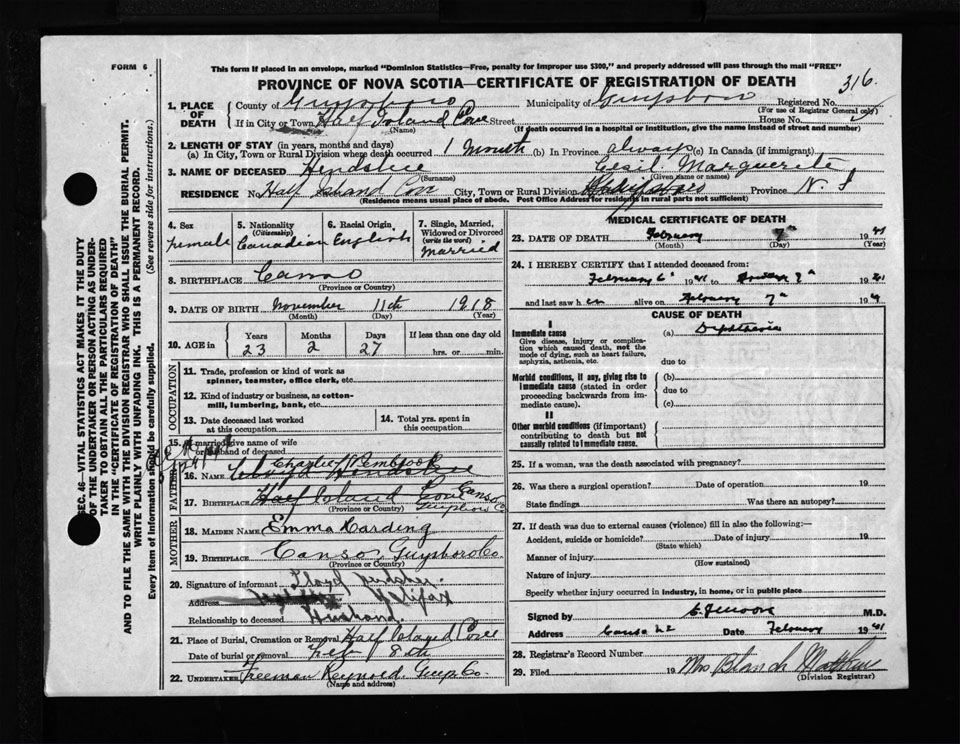 FORM 6
This form if placed in an envelope, marked "Dominion Statistics—Free, penalty for improper use $300," and properly addressed will pass through the mail "FREE"
PROVINCE OF NOVA SCOTIA—CERTIFICATE OF REGISTRATION OF DEATH
316.
1. PLACE OF DEATH
County of Guysboro Municipality of Guysboro Registered No.
(For use of Registrar General only)
If in City or Town Half Island Cove Street House No.
(Name) (If death occurred in a hospital or institution, give the name instead of street and number)
2. LENGTH OF STAY (in years, months and days)
(a) In City, Town or Rural Division where death occurred 1 Month (b) In Province always (c) In Canada (if immigrant)
3. NAME OF DECEASED Cecil Marguerite
(Surname) (Given name or names)
RESIDENCE No. Half Island Cove City, Town or Rural Division Province N. S
(Residence means usual place of abode. Post Office Address for residents in rural parts not sufficient)
4. Sex female
5. Nationality (Citizenship) Canadian
6. Racial Origin English
7. Single, Married, Widowed or Divorced (write the word) Married
8. BIRTHPLACE Canso
(Province or Country)
9. DATE OF BIRTH November 11th 1918
(Month) (Day) (Year)
10. AGE in Years Months Days If less than one day old
23 2 27 hrs. or min.
OCCUPATION
11. Trade, profession or kind of work as spinner, teamster, office clerk, etc.
12. Kind of industry or business, as cotton-mill, lumbering, bank, etc.
13. Date deceased last worked at this occupation
14. Total yrs. spent in this occupation
15. If married give name of wife or husband of deceased
FATHER
16. NAME Charlie
17. BIRTHPLACE Half Island Cove Canso
(Province or Country)
MOTHER
18. MAIDEN NAME Emma Harding
19. BIRTHPLACE Canso, Guysboro Co
(Province or Country)
20. Signature of informant Lloyd
Address Halifax
Relationship to deceased Husband.
21. Place of Burial, Cremation or Removal Half Island Cove
Date of burial or removal Feb 8th
22. UNDERTAKER Freeman Reynold, Guys Co.
(Name and address)
MEDICAL CERTIFICATE OF DEATH
23. DATE OF DEATH February 7th 1941
(Month) (Day) (Year)
24. I HEREBY CERTIFY that I attended deceased from:
February 6th 1941 to 7th 1941
and last saw h er alive on February 7th 19
CAUSE OF DEATH
I
Immediate cause
Give disease, injury or complication which caused death, not the mode of dying, such as heart failure, asphyxia, asthenia, etc.
(a) Diptheria
due to
Morbid conditions, if any, giving rise to immediate cause (stated in order proceeding backwards from immediate cause).
(b)
due to
(c)
II
Other morbid conditions (if important) contributing to death but not causally related to immediate cause.
25. If a woman, was the death associated with pregnancy?
26. Was there a surgical operation? Date of operation 19
State findings Was there an autopsy?
27. If death was due to external causes (violence) fill in also the following:—
Accident, suicide or homicide? Date of injury 19
(State which)
Manner of injury
(How sustained)
Nature of injury
Specify whether injury occurred in industry, in home, or in public place
Signed by M.D.
Address Canso N S Date February 1941
28. Registrar's Record Number
29. Filed 19 Mrs Blanch Matthews
(Division Registrar)
SEC. 46—VITAL STATISTICS ACT MAKES IT THE DUTY
OF THE UNDERTAKER OR PERSON ACTING AS UNDER-
TAKER TO OBTAIN ALL THE PARTICULARS REQUIRED
IN THE "CERTIFICATE OF REGISTRATION OF DEATH"
AND TO FILE THE SAME WITH THE DIVISION REGISTRAR WHO SHALL ISSUE THE BURIAL PERMIT.
WRITE PLAINLY WITH UNFADING INK. THIS IS A PERMANENT RECORD.
Every item of Information should be carefully supplied. (See reverse side for instructions.)